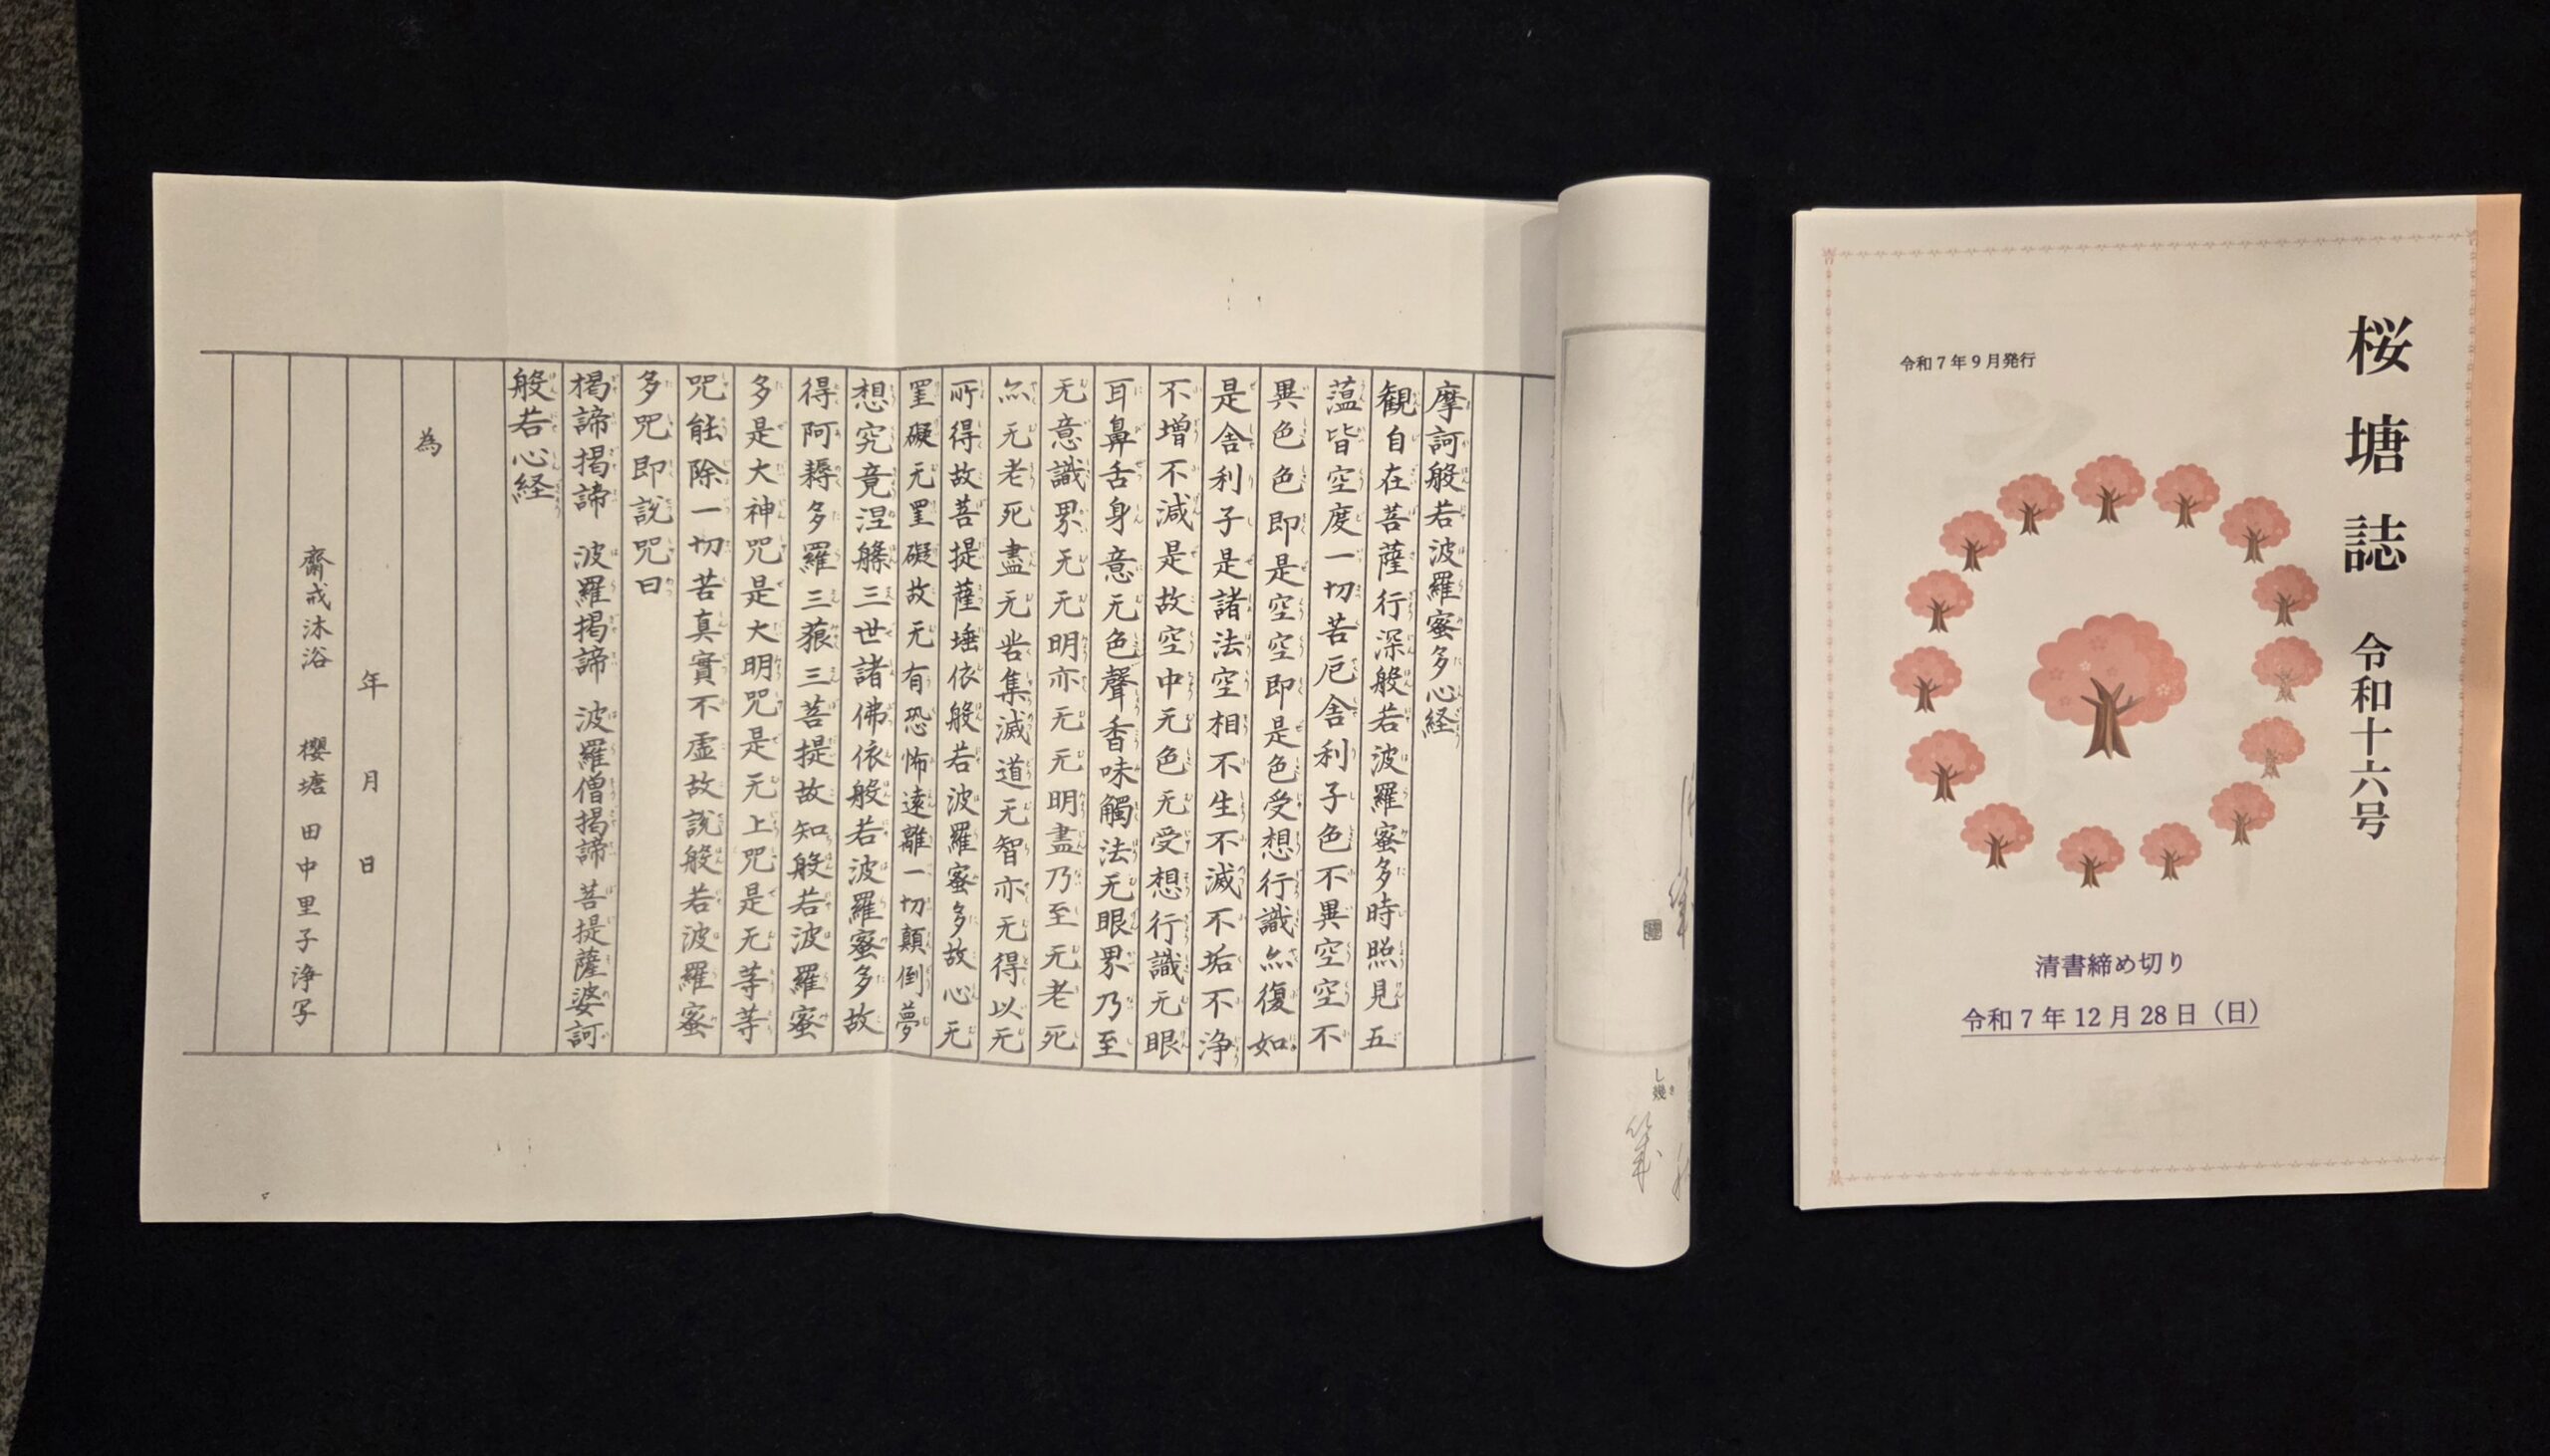 桜塘誌 令和十六号
令和7年9月発行
清書締め切り
令和7年12月28日(日)
し幾
摩訶般若波羅蜜多心経
観自在菩薩行深般若波羅蜜多時照見五
蕰皆空度一切苦厄舎利子色不異空空不
異色色即是空空即是色受想行識亦復如
是舎利子是諸法空相不生不滅不垢不浄
不増不減是故空中无色无受想行識无眼
耳鼻舌身意无色聲香味觸法无眼界乃至
无意識界无无明亦无无明盡乃至无老死
亦无老死盡无苦集滅道无智亦无得以无
所得故菩提薩埵依般若波羅蜜多故心无
罣礙无罣礙故无有恐怖遠離一切顛倒夢
想究竟涅槃三世諸佛依般若波羅蜜多故
得阿耨多羅三藐三菩提故知般若波羅蜜
多是大神咒是大明咒是无上咒是无等等
咒能除一切苦真實不虚故説般若波羅蜜
多咒即説咒曰
掲諦掲諦 波羅掲諦 波羅僧掲諦 菩提薩婆訶
般若心経
為
年 月 日
齋戒沐浴 櫻塘 田中里子浄写